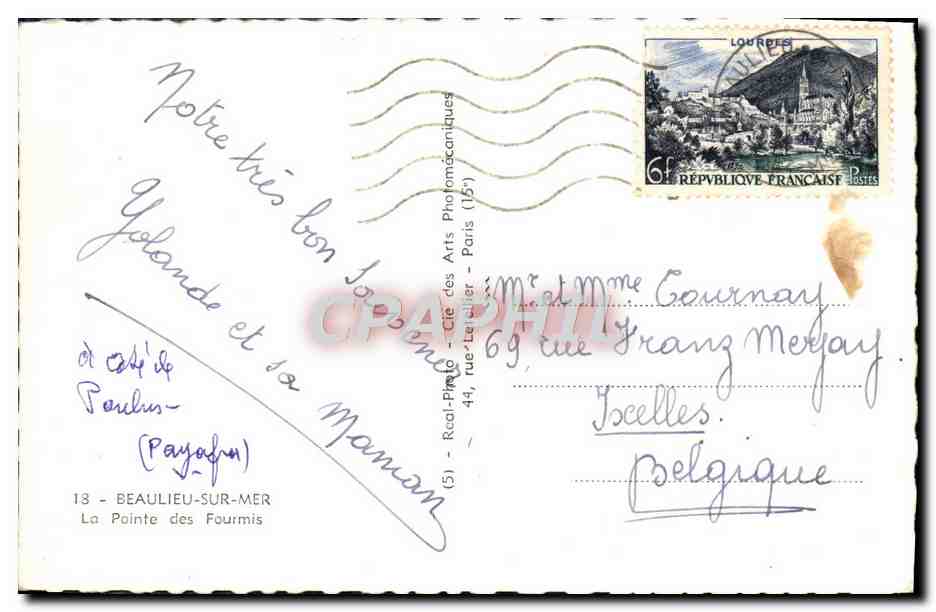 Notre très bon souvenir
Yolande et sa Maman
à côté de
Paulus
18 - BEAULIEU-SUR-MER
La Pointe des Fourmis
(5) - Real-Photo - Cie des Arts Photomécaniques
44, rue Letellier - Paris (15°)
LOURDES
6f RÉPVBLIQUE FRANÇAISE POSTES
BEAULIEU
Mr et Mme Tournay
69, rue Franz Merjay.
Ixelles.
Belgique
CPAPHIL